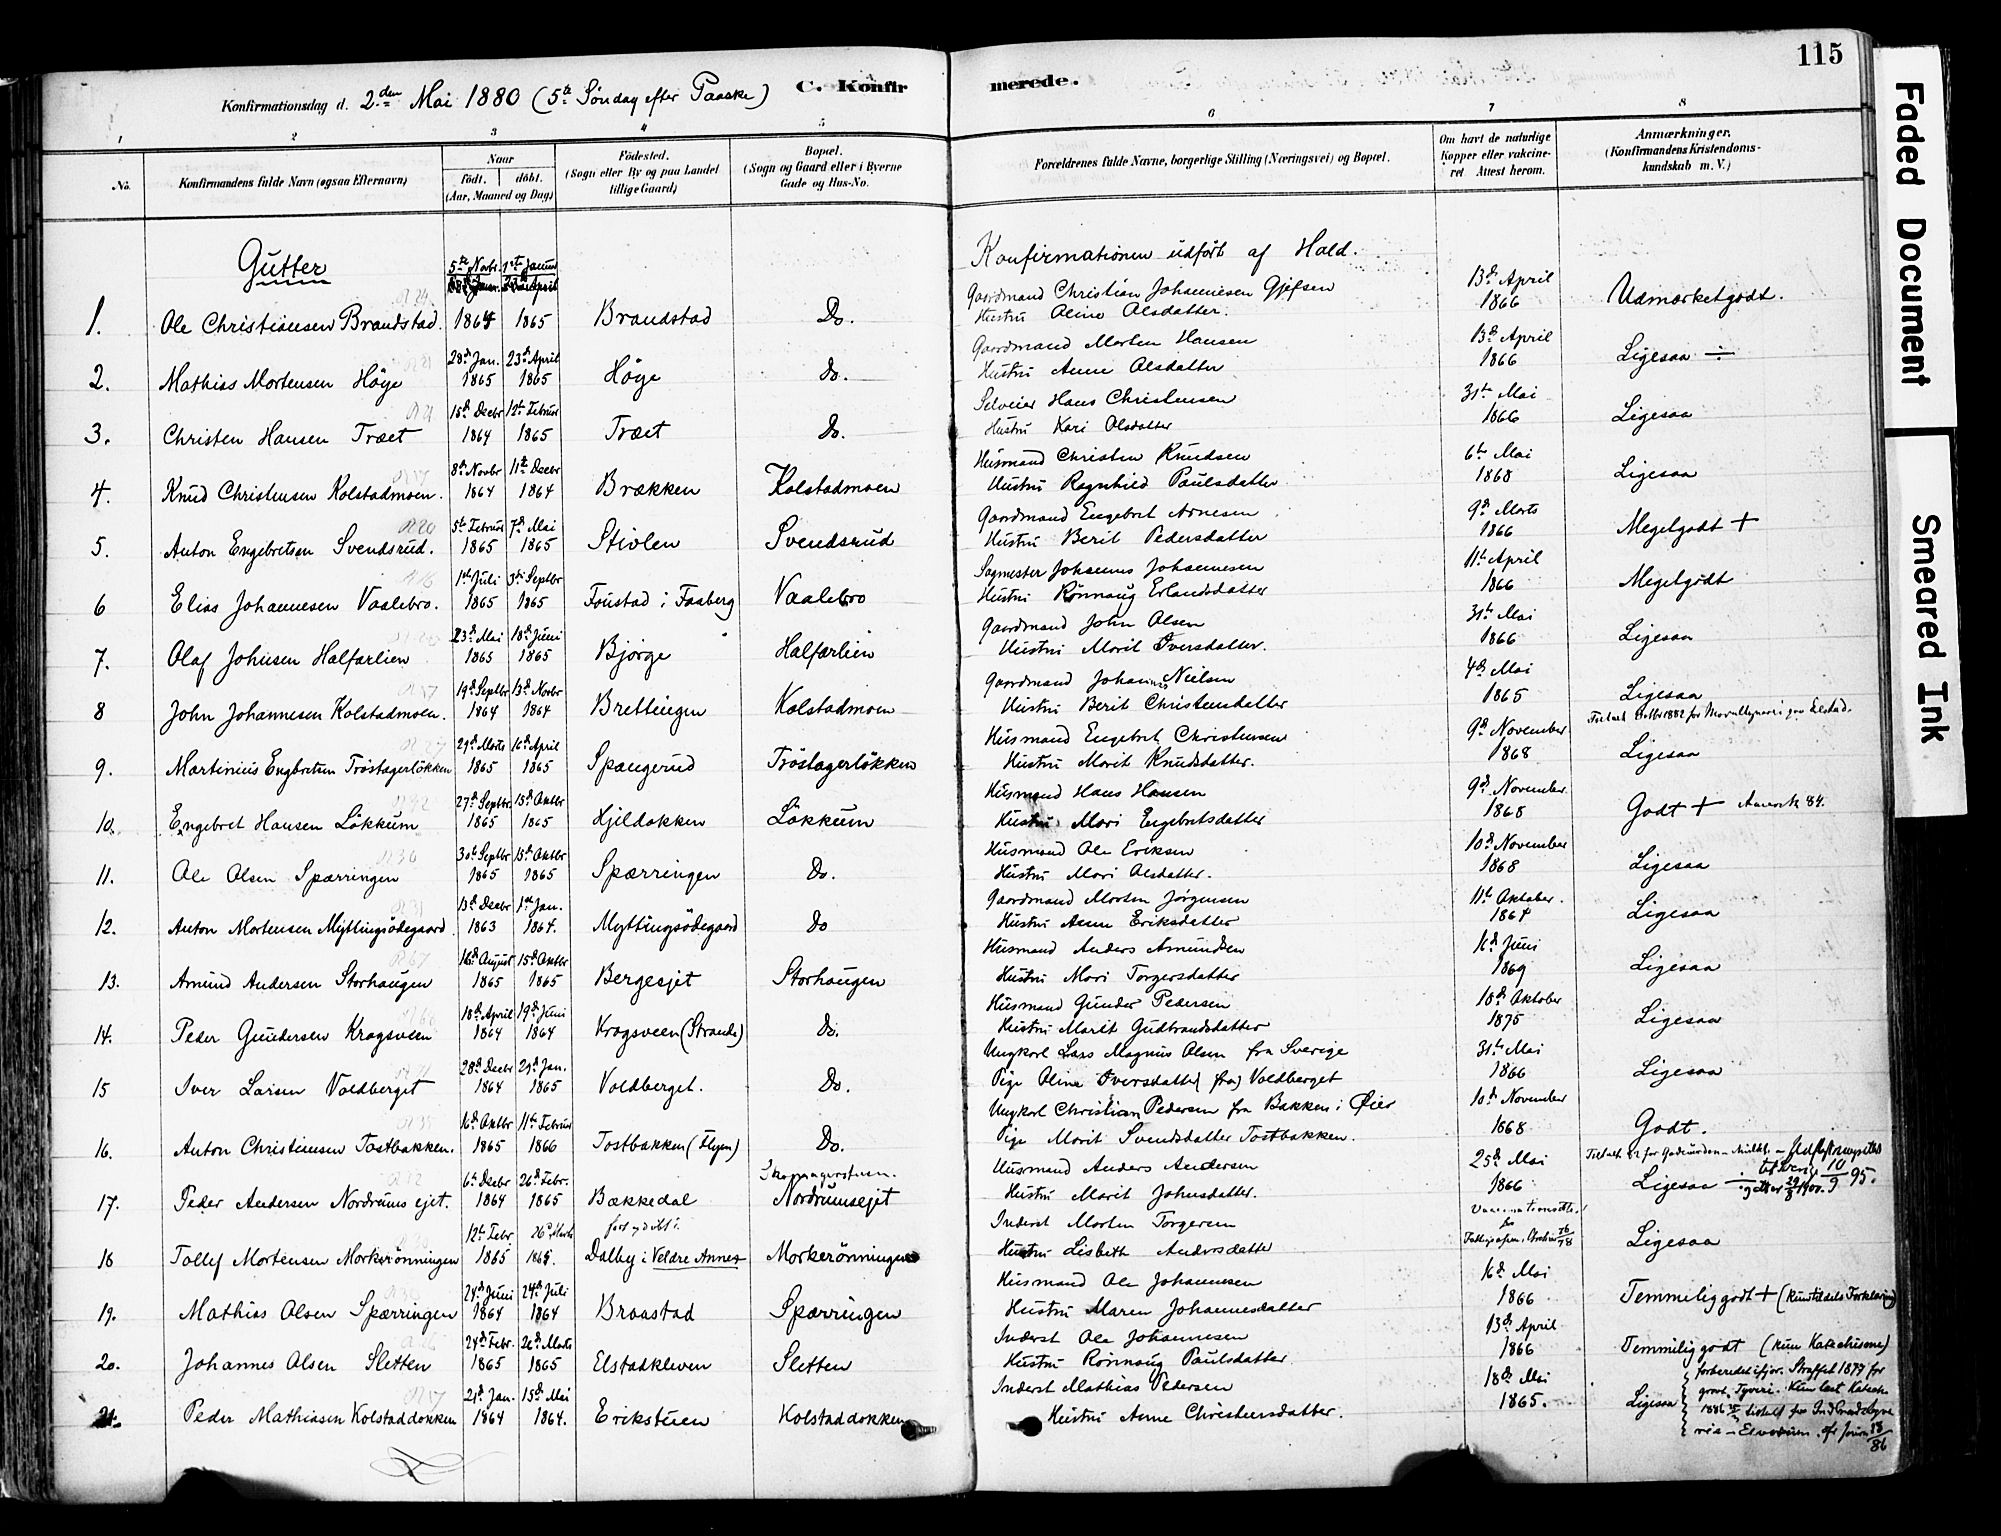 115
Konfirmationsdag d. 2den Mai 1880 (5te Søndag efter Paaske) C. Konfir merede.
1 2 3 4 5 6 7 8
No. Konfirmandens fulde Navn (ogsaa Efternavn) Naar født. døbt. (Aar, Maaned og Dag) Fødested. (Sogn eller By og paa Landet tillige Gaard) Bopæl. (Sogn og Gaard eller i Byerne Gade og Hus-No. Forældrenes fulde Navne, borgerlige Stilling (Næringsvei) og Bopæl. Om havt de naturlige Kopper eller vakcineret Attest herom. Anmærkninger. (Konfirmandens Kristendomskundskab m. V.)
Gutter
Konfirmationen udført af Hald.
5te Novbr. 1ste Januar Gaardmand Christian Johannesen Gjefsen 13de April
1. Ole Christiansen Brandstad. 1864 1865 Brandstad Do. Hustru Oline Olsdatter. 1866 Udmærketgodt.
28de Jan. 23de April Gaardmand Morten Hansen 13de April
2. Mathias Mortensen Høye 1865 1865 Høye Do. Hustru Anne Olsdatter 1866 Ligesaa ÷
15de Decbr 12te Februar Selveier Hans Christensen 31te Mai
3. Christen Hansen Træet 1864 1865 Træet Do. Hustru Kari Olsdatter 1866 Ligesaa
8de Novbr 11te Decbr Husmand Christen Knudsen 6te Mai
4. Knud Christensen Kolstadmoen. 1864 1864 Brækken Kolstadmoen Hustru Ragnhild Paulsdatter 1868 Ligesaa
5te Februar 7de Mai Gaardmand Engebret Arnesen 9de Marts
5. Anton Engebretsen Svendsrud. 1865 1865 Stivlen Svendsrud Hustru Berit Pedersdatter 1866 Megetgodt +
1ste Juli 3die Septbr Sagmester Johannes Johannesen 11te April
6 Elias Johannesen Vaalebro. 1865 1865 Foustad i Faaberg Vaalebro Hustru Rønnaug Erlandsdatter 1866 Megetgodt
23de Mai 18de Juni Gaardmand John Olsen 31te Mai
7. Olaf Johnsen Halfarlien 1865 1865 Bjørge Halfarlien Hustru Marit Iversdatter. 1866 Ligesaa
19de Septbr 13de Novbr Gaardmand Johannes Nielsen 4de Mai
8 John Johannesen Kolstadmoen. 1864 1864 Brettingen Kolstadmoen Hustru Berit Christensdatter 1865 Ligesaa
29de Marts 16de April Husmand Engebret Christensen 9de November
9. Martinius Engebretsen Trøstagerløkken 1865 1865 Spangerud Trøstagerløkken Hustru Marit Knudsdatter. 1868 Ligesaa
27de Septbr 15de Oktbr Husmand Hans Hansen 9de November
10. Engebret Hansen Løkkum 1865 1865 Kjildokken Løkkum Hustru Mari Engebretsdatter 1868 Godt + Amerik 84.
30te Septbr 15de Oktbr Husmand Ole Eriksen 10de November
11. Ole Olsen Spærringen 1865 1865 Spærringen Do. Hustru Mari Olsdatter. 1868 Ligesaa
13de Decbr 1ste Jan. Gaardmand Morten Jørgensen 11te Oktober.
12. Anton Mortensen Myttingsødegaard 1863 1864. Myttingsødegaard Do Hustru Anne Eriksdatter 1864 Ligesaa
16de August 15de Oktbr Husmand Anders Amundsen 16de Juni
13. Amund Andersen Storhaugen 1865 1865 Bergesjet Storhaugen Hustru Mari Torgersdatter 1869 Ligesaa
18de April 19de Juni Husmand Gunder Pedersen 18de Oktober
14. Peder Gundersen Kragsveen 1864 1864 Kragsveen (Strande) Do. Hustru Marit Gudbrandsdatter 1875 Ligesaa
28de Decbr 29de Jan. Ungkarl Lars Magnus Olsen fra Sverige 31te Mai
15 Iver Larsen Voldberget 1864 1865 Voldberget. Do. Pige Oline Iversdatter (fra) Voldberget 1866 Ligesaa
16de Oktbr 11te Februar Ungkarl Christian Pedersen fra Bakken i Øier 10de November
16. Anton Christiansen Tostbakken. 1865 1866 Tostbakken (Flyen) Do. Pige Marit Svendsdatter Tostbakken. 1868 Godt.
6te Decbr 26de Febr. Husmand Anders Andersen 25de Mai
17. Peder Andersen Nordrumsejet. 1864 1865 Bækkedal Nordrumsejet Hustru Marit Johnsdatter. 1866 Ligesaa ÷
12te Febr. 26de Marts Inderst Morten Torgersen
18 Tollef Mortensen Morkerønningen 1865 1865. Dalby i Veldre Annex Morkerønningen Hustru Lisbeth Andersdatter Ligesaa
24de Juni 24de Juli Husmand Ole Johannesen 16de Mai
19. Mathias Olsen Spærringen 1864 1864 Braastad Spærringen Hustru Maren Johannesdatter 1866 Temmeliggodt + (kun tildels Forklaring)
24de Febr. 26de Marts Inderst Ole Johannesen 13de April
20. Johannes Olsen Sletten 1865 1865 Elstadkleven Sletten Hustru Rønnaug Paulsdatter 1866 Temmeliggodt (kun Katechisme)
21de Jan. 15de Mai Inderst Mathias Pedersen 18de Mai
21. Peder Mathiasen Kolstaddokken 1864 1864. Eriksteen Kolstaddokken Hustru Anne Christensdatter. 1865. Ligesaa forberedet ifjor. Straffet 1879 for grovt Tyveri. Kun læst Katech.
Faded Document
Smeared Ink